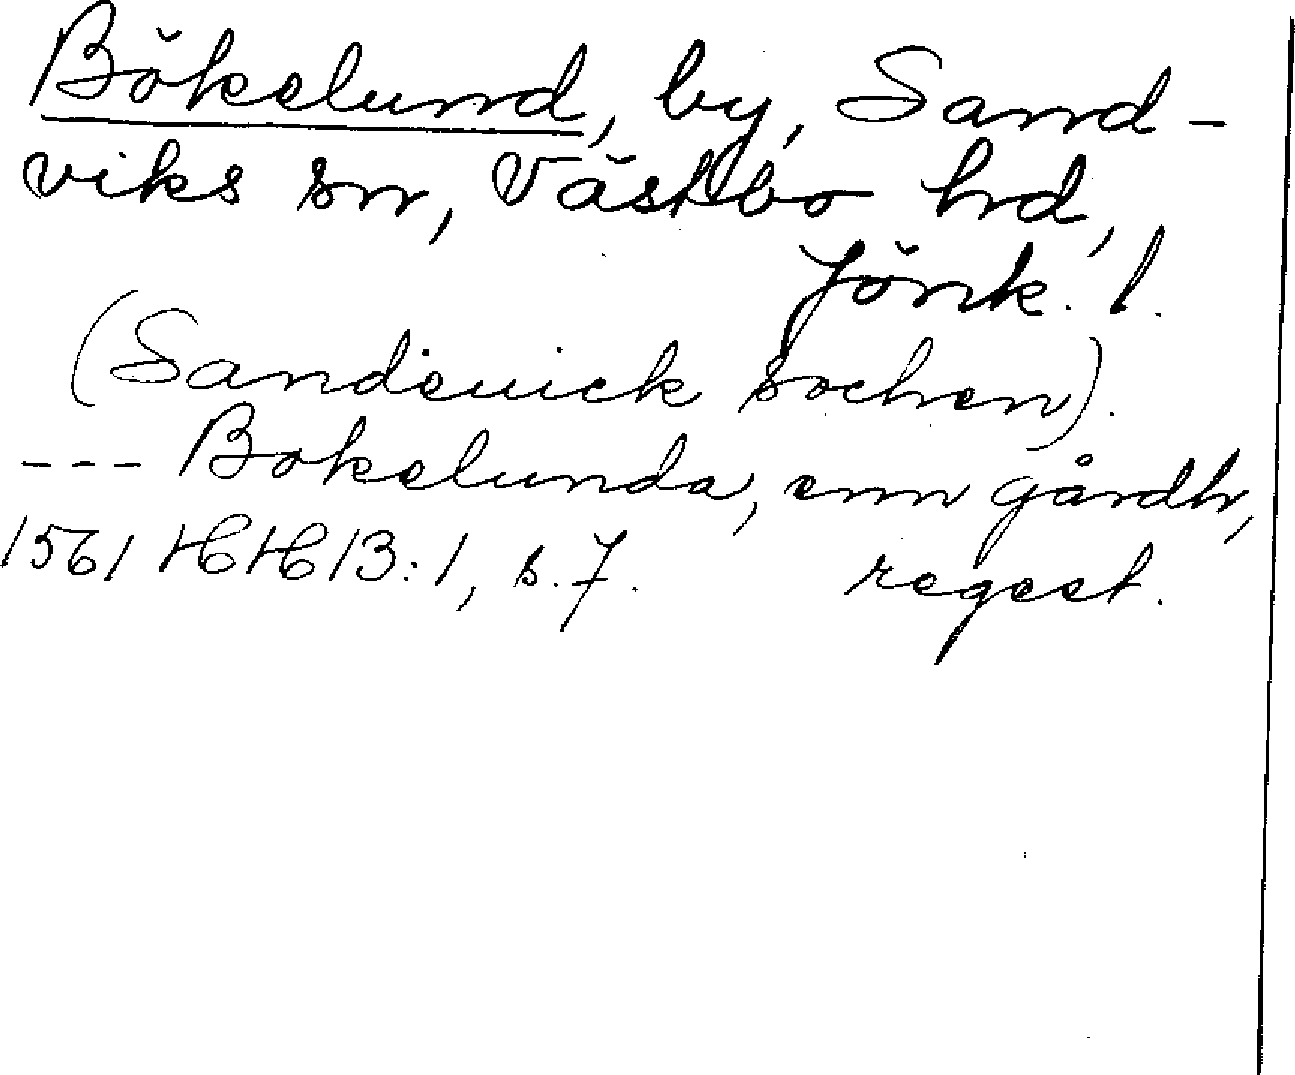 Bökelund, by, Sand-
viks sn, Västbo hd,
Jönk. l.
(Sandeuick sochen).
--- Bokelunda, enn gårdh,
1561 HH 13:1, s. 7. regest.